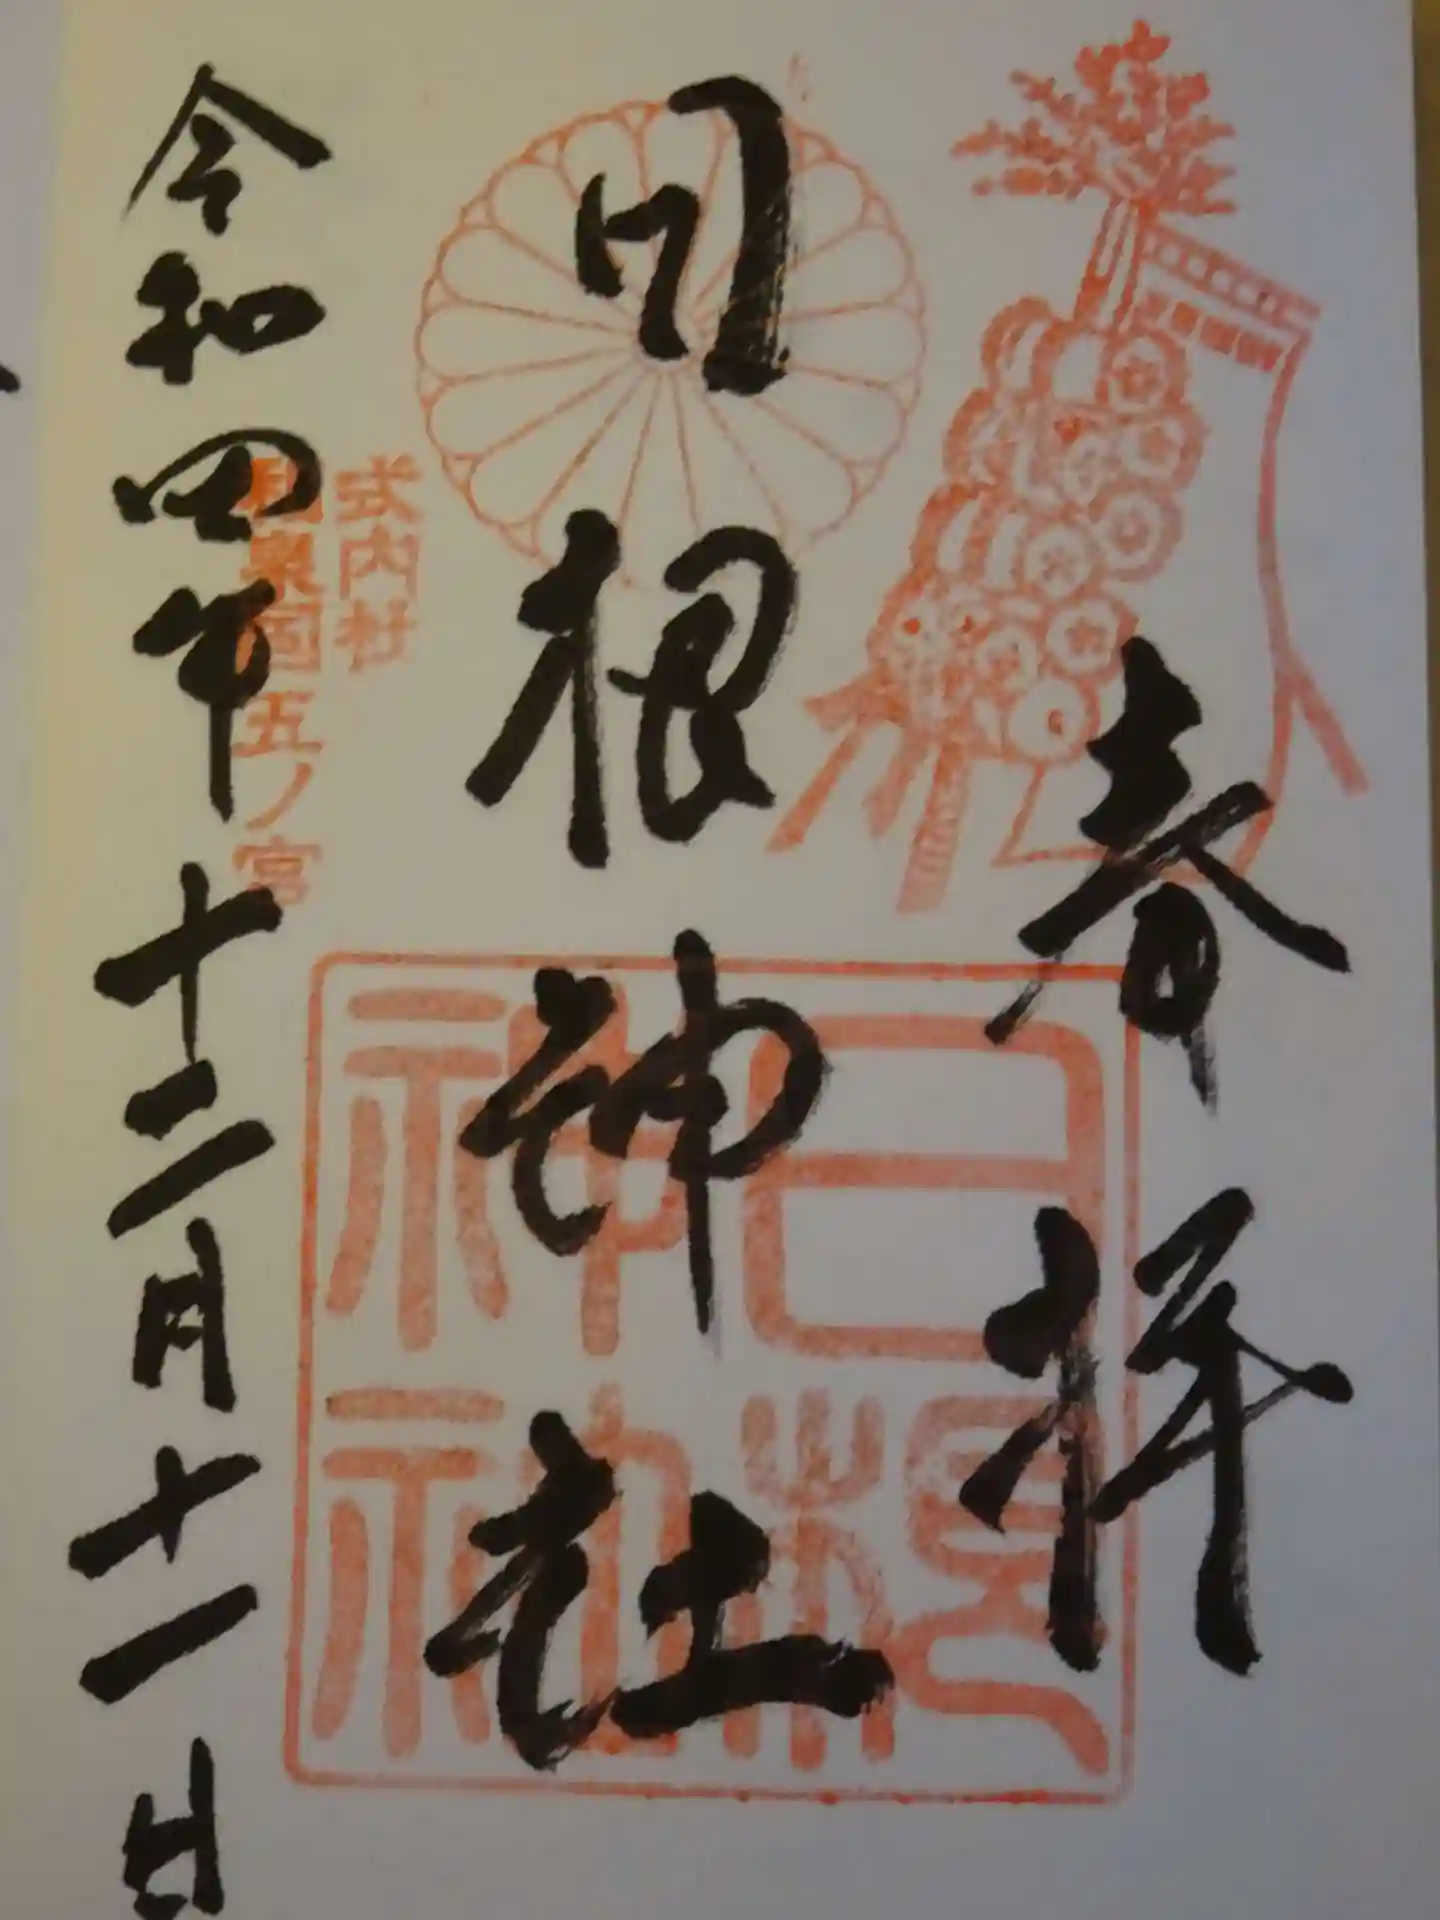 奉拝
日根神社
式内社
和泉国五ノ宮
令和四年十二月十一日
日根神社